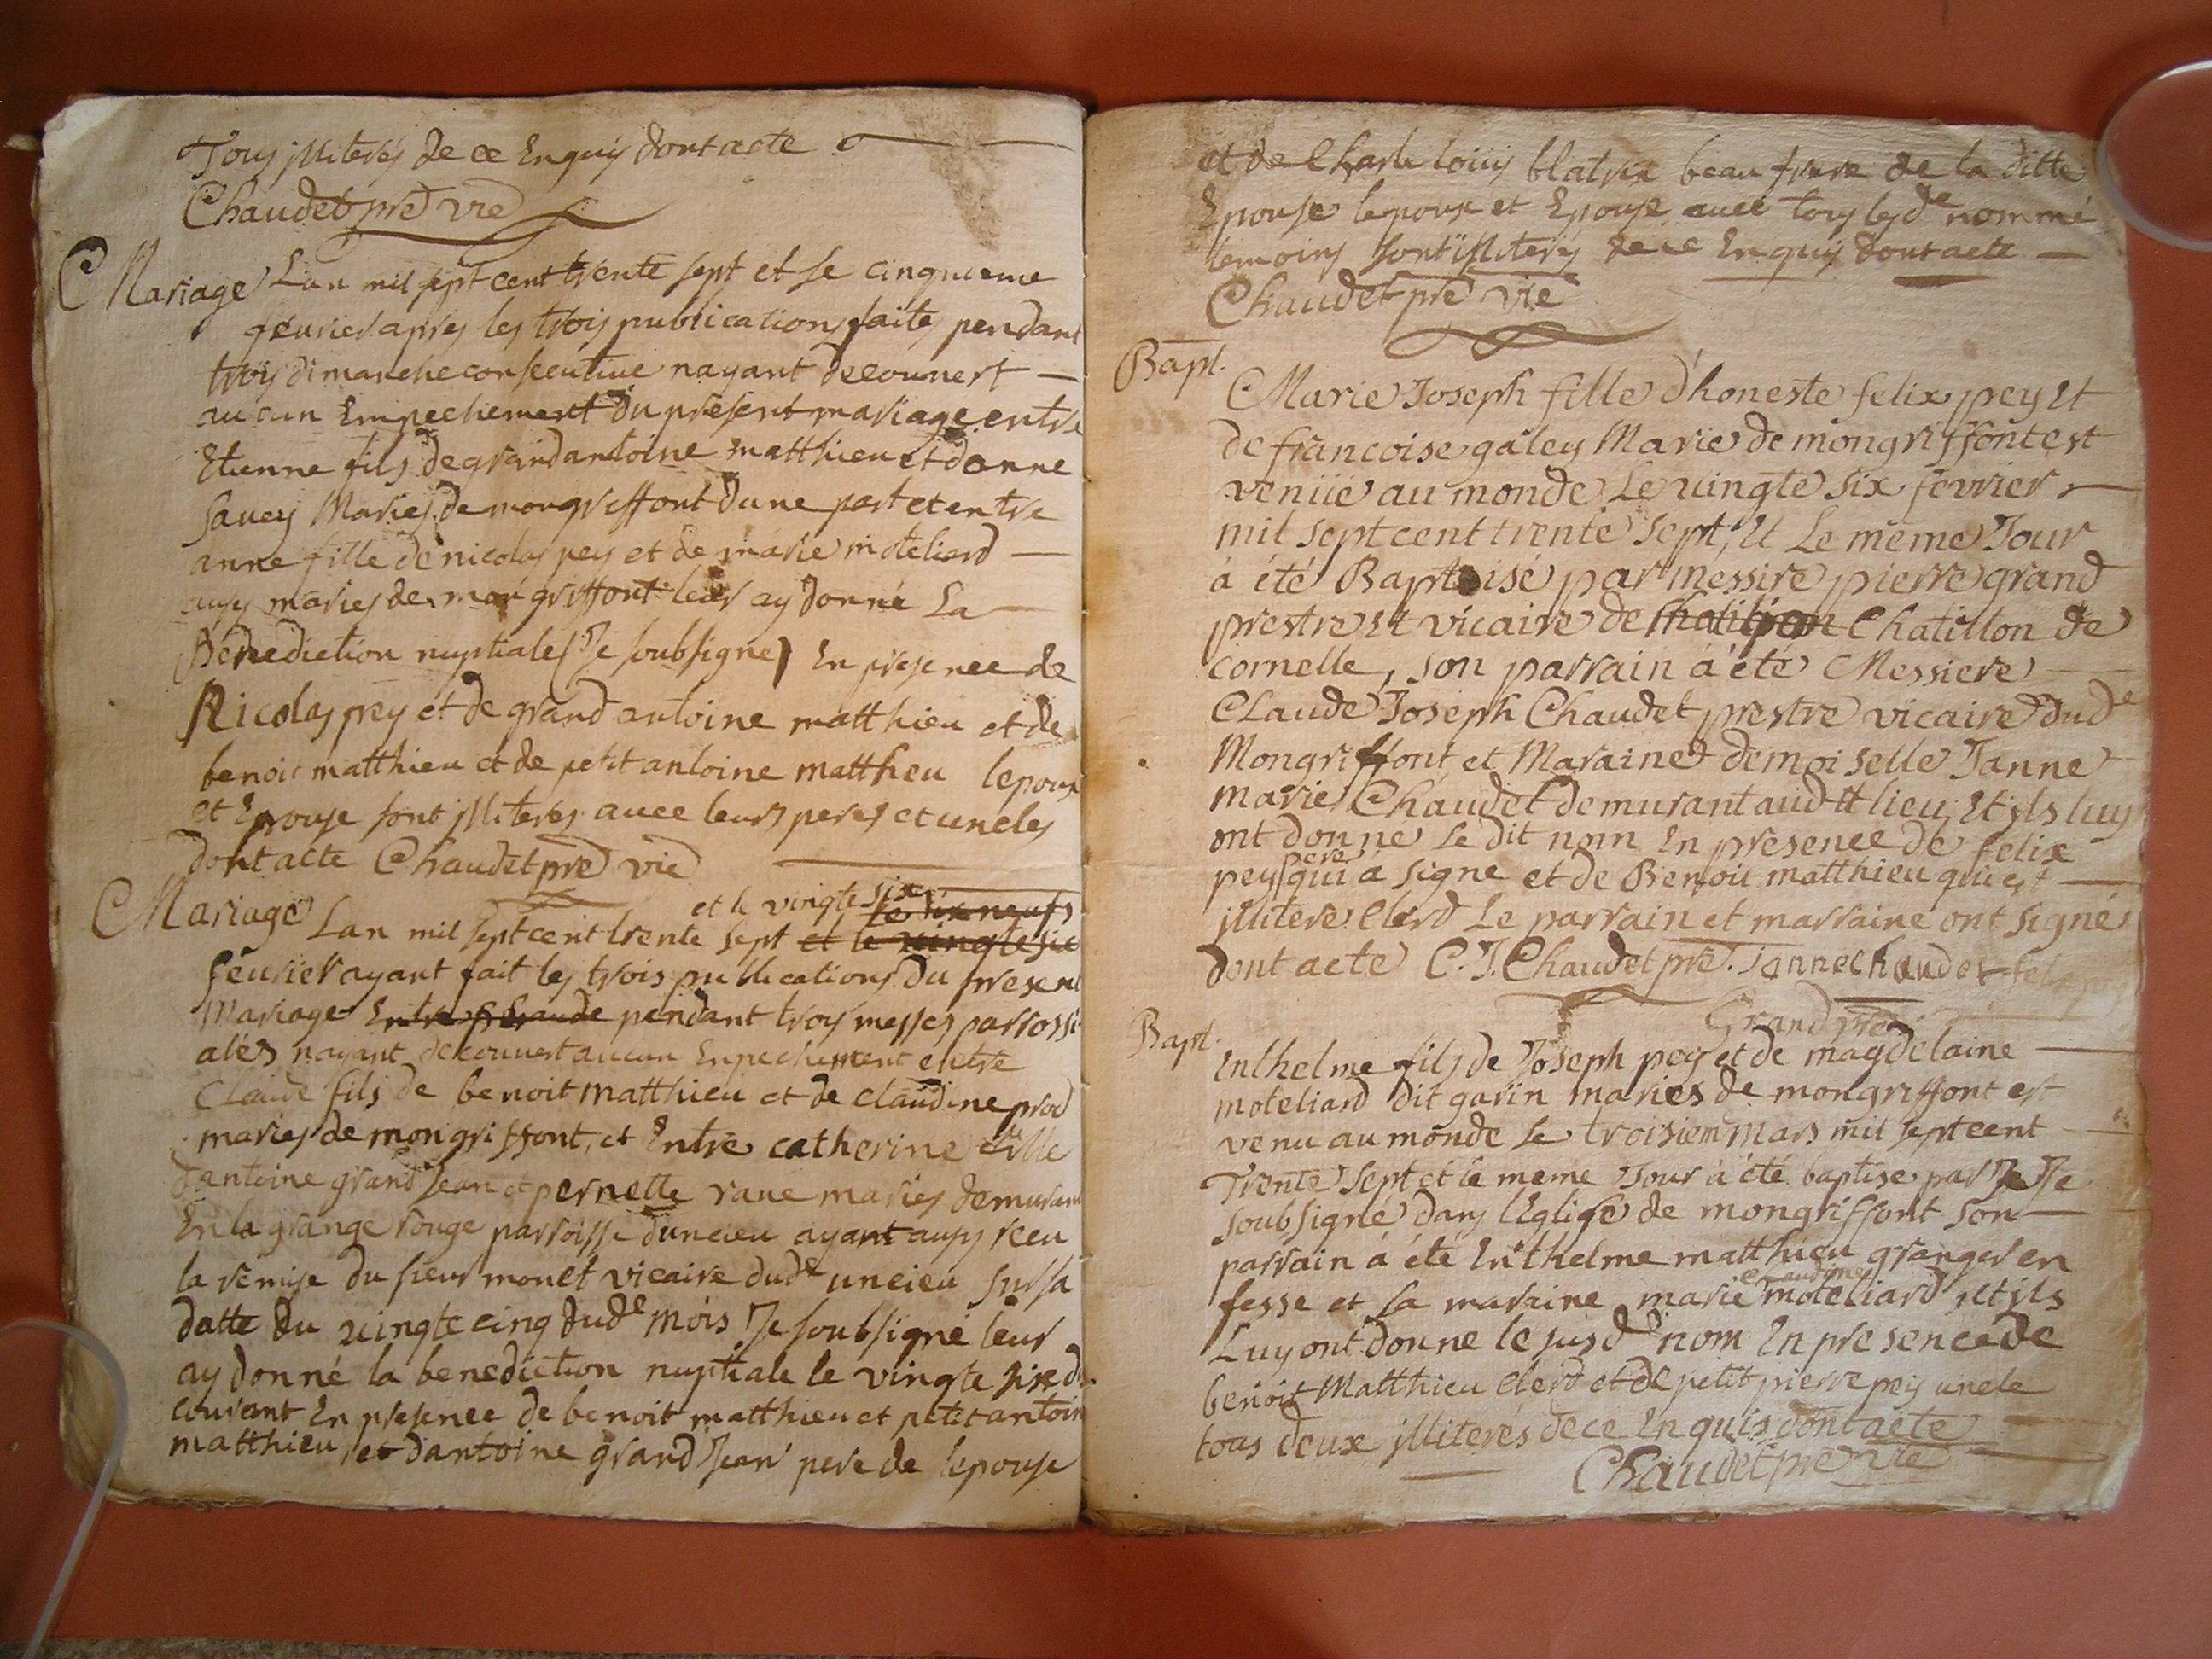 Tous jlliterés de ce Enquis dont acte
Chaudet pre vre
Mariage Lan mil sept cent trente sept et le cinquieme
feurier apres les trois publications faites pendant
trois dimanche consecutiue nayant decouuert
aucun Empechement du present mariage entre
Etienne fils de grand antoine matthieu et donne
sauey Maries de mongriffont dune part et entre
anne fille de nicolas pey et de marie moteliard
ausy maries de mongriffont leur ay donné La
Benediction nuptiale (Je soubsigné) En presence de
Nicolas pey et de grand antoine matthieu et de
benoit matthieu et de petit antoine matthieu lepoux
et Epouse sont jlliterés auec leurs peres et uncles
dont acte Chaudet pre vie
et le vingte six le dix neufs
Mariage Lan mil sept cent trente sept et le vingte six
feurier ayant fait les trois publications du present
Mariage Entre Claude pendant trois messes parrossi-
ales nayant decouuert aucun Enpechement entre
Claude fils de benoit matthieu et de claudine prod
maries de mongriffont, et Entre catherine fille
dantoine grand Jean et pernette raue maries demurant
En la grange rouge parroisse duncieu ayant ausy reeu
la remise du sieur monet vicaire dude uncieu sur sa
datte du vingte cinq dude mois Je soubsigné leur
ay donné la benediction nuptiale le vingte six du
courant En presence de benoit matthieu et petit antoine
matthieu et dantoine grand Jean pere de lepouse
et de Charle loüis blatrix beau frere de la ditte
Epouse lepoux et Epouse auec tous les de nommé
temoins sont illiterés de ce Enquis dont acte
Chaudet pre vie
Bapt.
Marie Joseph fille d'honeste felix pey Et
de francoise galey Marie de mongriffont est
venüe au monde Le vingte six fevrier
mil sept cent trente sept, Et Le meme Jour
à été Baptisé par messire pierre grand
prestre Et vicaire de Chatillon Chatillon de
cornelle, son parrain à été Messiere
Claude Joseph Chaudet prestre vicaire dude
Mongriffont et Maraine demoiselle Janne
marie Chaudet demurant audit lieu, Et ils luy
ont donné le dit nom En presence de felix
pey pere qui à signe et de Benoit matthieu qui est
jllitere Clerd Le parrain et marraine ont signé
dont acte C. J. Chaudet pre. janne chaudet felix pey
Grand pre
Bapt.
Enthelme fils de Joseph pey et de magdelaine
moteliard dit garin maries de mongriffont est
venu au monde le troisiem mars mil sept cent
Trente sept et le meme Jour à été baptise par Je Je
soubsigné dans l'Eglise de mongriffont son
parrain à été Enthelme matthieu granger en
fesse et sa maraine marie claudine moteliard, et ils
Luy ont donne le susde nom En presence de
benoit Matthieu clerd et de petit pierre pey uncle
tous deux jlliterés de ce Enquis dont acte
Chaudet pre vie